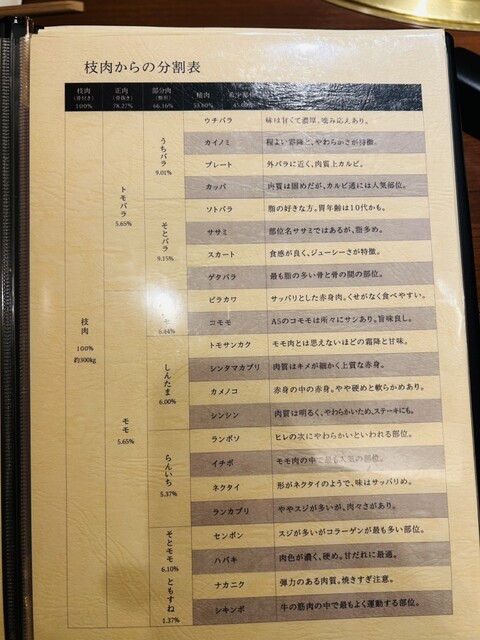 枝肉からの分割表
枝肉 正肉 部分肉 精肉
(骨付き) (骨抜き) (整形)
100% 78.27% 66.16%
枝肉
100%
約300kg
トモバラ
5.65%
モモ
5.65%
うちバラ
9.01%
ウチバラ 味は甘くて濃厚。噛み応えあり。
カイノミ 程よい霜降と、やわらかさが特徴。
プレート 外バラに近く、肉質上カルビ。
カッパ 肉質は固めだが、カルビ通には人気部位。
そとバラ
9.15%
ソトバラ 脂の好きな方。胃年齢は10代かも。
ササミ 部位名ササミではあるが、脂多め。
スカート 食感が良く、ジューシーさが特徴。
ゲタバラ 最も脂の多い骨と骨の間の部位。
6.64%
ヒラカワ サッパリとした赤身肉。くせがなく食べやすい。
コモモ A5のコモモは所々にサシあり。旨味良し。
しんたま
6.00%
トモサンカク モモ肉とは思えないほどの霜降と甘味。
シンタマカブリ 肉質はキメが細かく上質な赤身。
カメノコ 赤身の中の赤身。やや硬めと軟らかめあり。
シンシン 肉質は明るく、やわらかいため、ステーキにも。
らんいち
5.37%
ランボソ ヒレの次にやわらかいといわれる部位。
イチボ モモ肉の中で最も人気の部位。
ネクタイ 形がネクタイのようで、味はサッパリめ。
ランカブリ ややスジが多いが、肉々さがあり。
そとモモ
6.10%
センボン スジが多いがコラーゲンが最も多い部位。
ハバキ 肉色が濃く、硬め。甘だれに最適。
ともすね
1.37%
ナカニク 弾力のある肉質。焼きすぎ注意。
シキンボ 牛の筋肉の中で最もよく運動する部位。